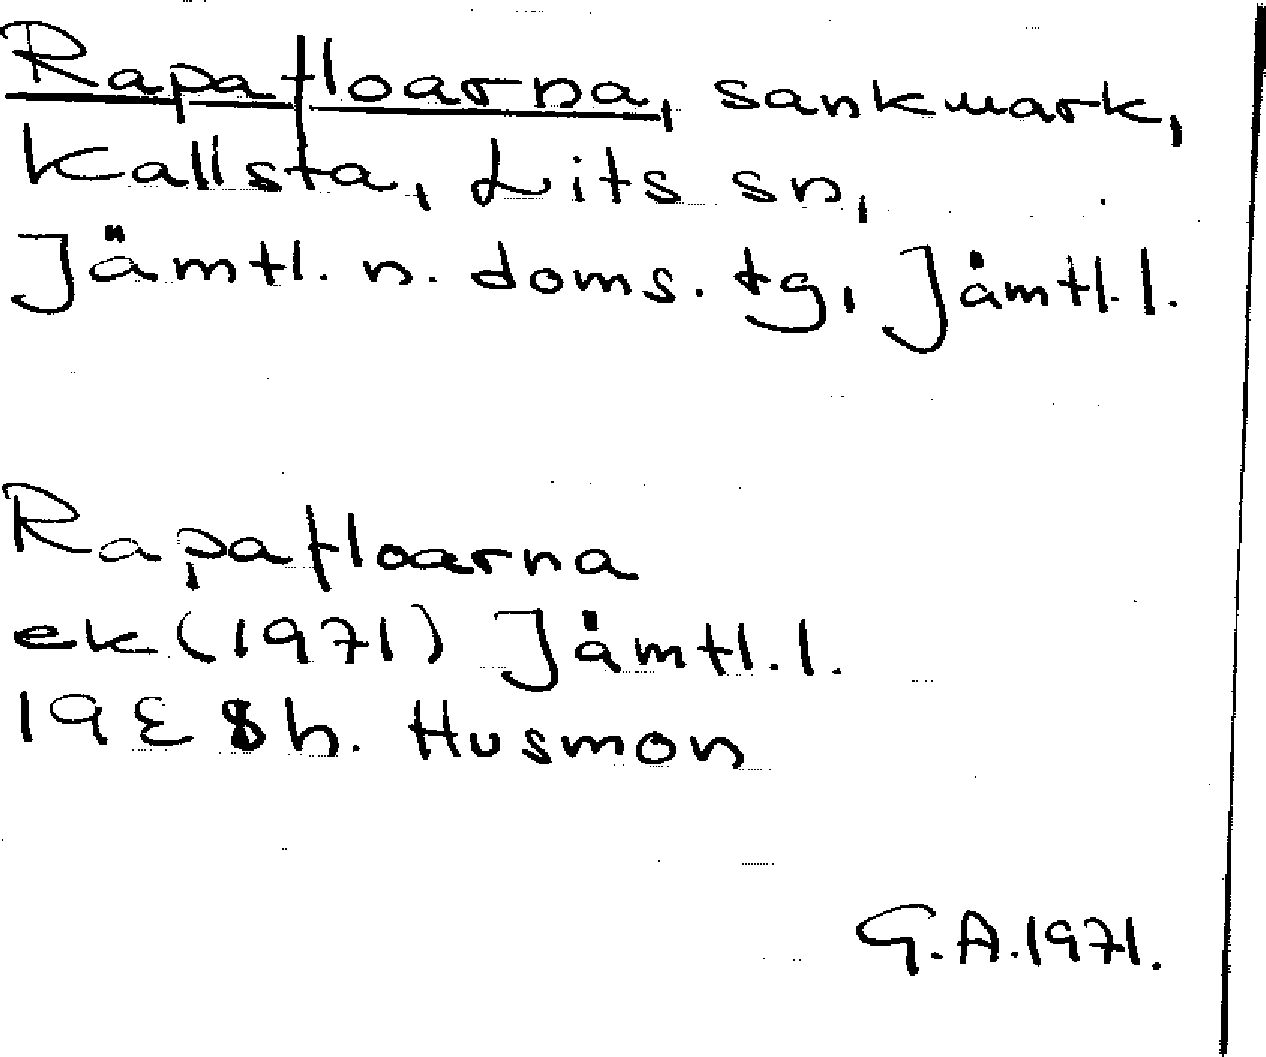 Rapafloarna, sankmark,
Kallsta, Lits sn,
Jämtl. n. doms. tg, Jämtl. l.
Rapafloarna
ek (1971) Jämtl. l.
19E 8h. Husmon
G.A. 1971.